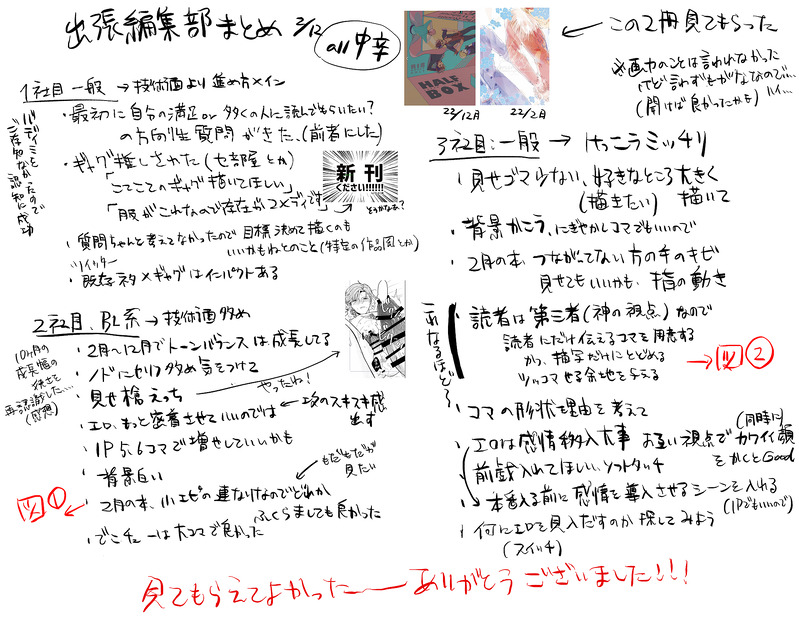 出張編集部まとめ 3/12
all 中辛
HALF
BOX
22/12月
23/2月
← この2冊見てもらった
※画力のことは言われなかった
けど言わずもがななので…
(聞けば良かったかも) ハイ…
1社目 一般 → 技術面より進め方メイン
・最初に自分の満足 or 多くの人に読んでもらいたい?
の方向性質問がきた、(前者にした)
・ギャグ推しされた(セ部屋とか)
「ここでこのギャグ描いてほしい」
「服がこれなので存在がコメディです」
→ どうかなあ?
新刊
ください!!!!!!
・質問ちゃんと考えてなかったので目標決めて描くのも
いいかもねとのこと(特定の作品同とか)
ツイッター
・既存ネタ×ギャグはインパクトある
2社目、BL系 → 技術面多め
・2月〜12月でトーンバランスは成長してる
10ヶ月の
成長幅の
再認識した…
(感想)
・ノドにセリフ多め気をつけて
・見せ槍えっち
やったね!
・エロ、もっと密着させていいのでは ← 攻のスキスキ感
出す
・1P5、6コマで増やしていいかも
・背景白い
・2月の本、小エピの連なりなのでどれか
ふくらましても良かった
もだもだが
見たい
ツ ①
・でこチューは大コマで良かった
3社目:一般 → けっこうミッチリ
・見せゴマ少ない、好きなところ大きく
(描きたい) 描いて
・背景かこう、にぎやかしコマでもいいので
・2月の本、つながってない方の手のキビ
見せてもいいかも、指の動き
これなるほど〜
・読者は第三者(神の視点)なので
読者にだけ伝えるコマを用意する
かつ、描写だけにとどめる
ツッコマせる余地を与える
→ ツ ②
・コマの形状理由を考えて
・エロは感情移入大事 お互い視点でカワイイ顔
(同時に)
をかくとGood
・前戯入れてほしい、ソフトタッチ
・本番入る前に感情を導入させるシーンを入れる
(1Pでもいいので)
・何にエロを見い出すのか探してみよう
(スイッチ)
見てもらえてよかった―ありがとうございました!!!